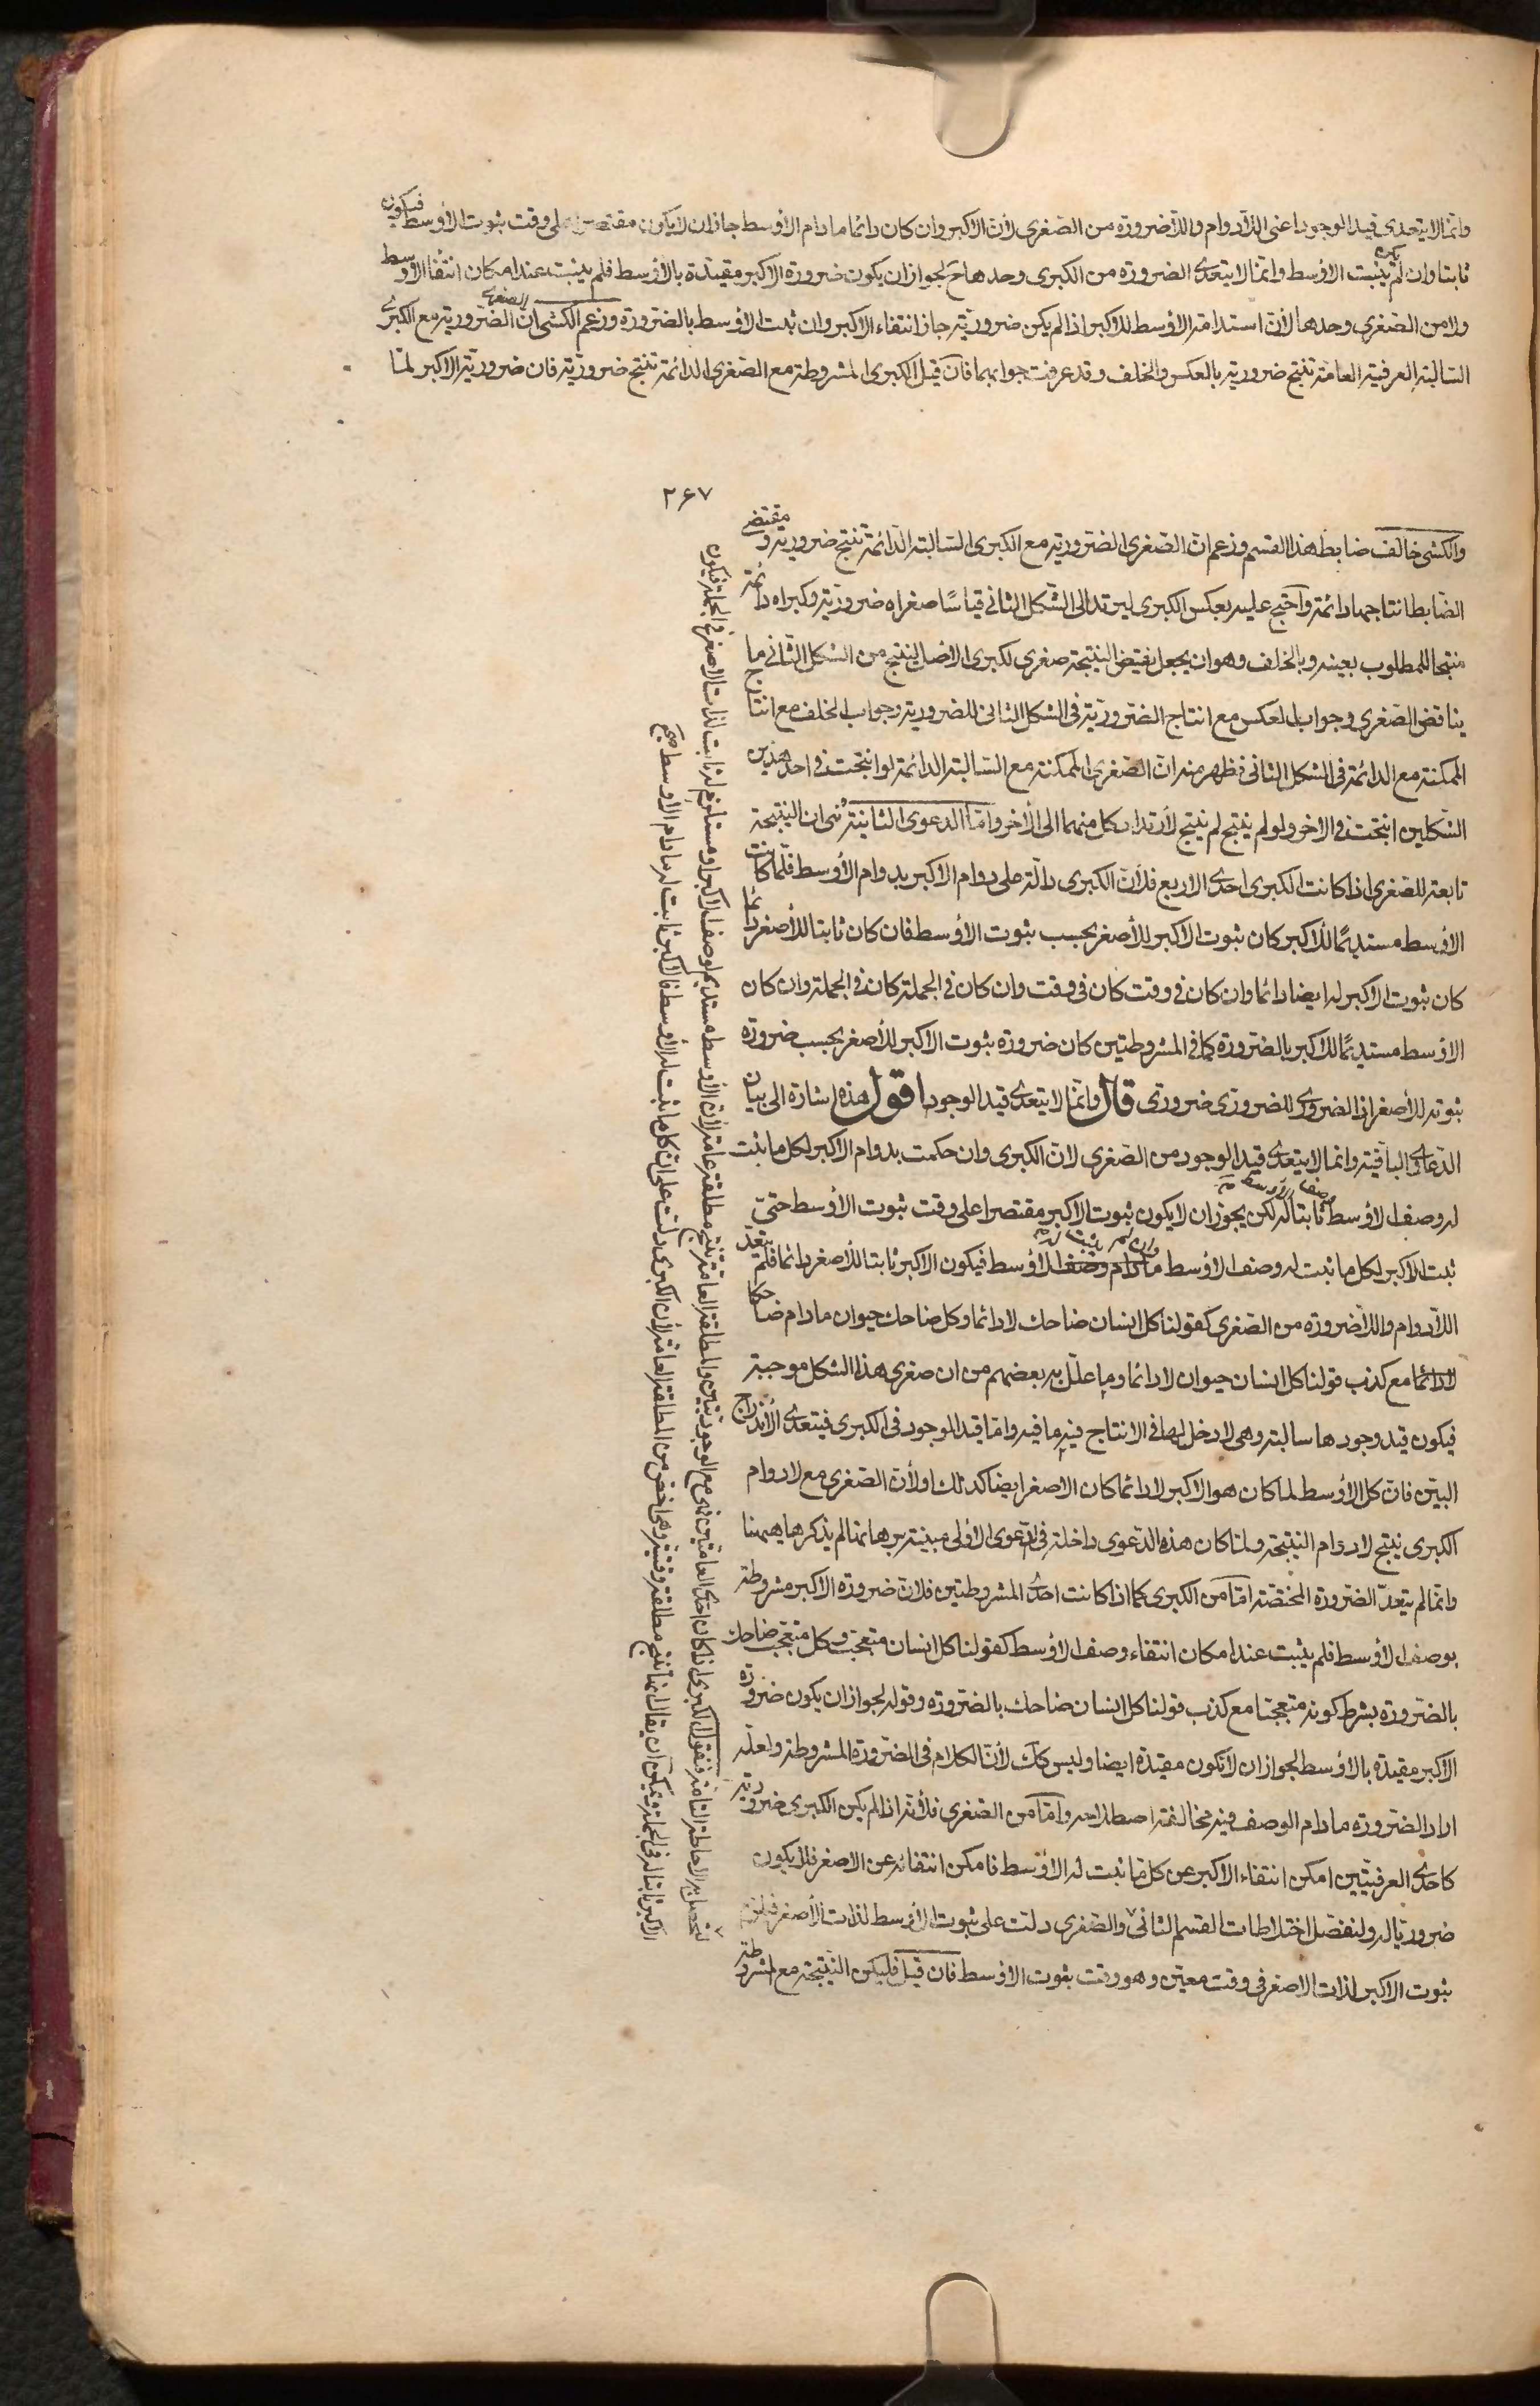 وانما لا يتعدى قيد الوجود اعنى اللادوام واللاضرورة من الصغرى لان الاكبر وان كان دائما مادام الاوسط جاز ان لا يكون مقتصرا على وقت ثبوت الاوسط فيكون
ثابتا وان لم يثبت الاوسط وانما لا يتعدى الضرورة من الكبرى وحدها ح لجواز ان يكون ضرورة الاكبر مقيدة بالاوسط فلم يثبت عند امكان انتفاء الاوسط
ولا من الصغرى وحدها لان استدامة الاوسط للاكبر اذا لم يكن ضرورية جاز انتفاء الاكبر وان ثبت الاوسط بالضرورة وزعم الكشى ان الصغرى الضرورية مع الكبرى
السالبة العرفية العامة تنتج ضرورية بالعكس والخلف وقد عرفت جوابهما فان قيل الكبرى المشروطة مع الصغرى الدائمة تنتج ضرورية فان ضرورية الاكبر لما
٢٦٧
والكشى خالف ضابط هذا القسم وزعم ان الصغرى الضرورية مع الكبرى السالبة الدائمة تنتج ضرورية ومقتضى
الضابط انتاجها دائمة واحتج عليه بعكس الكبرى ليرتد الى الشكل الثانى قياسا صغراه ضرورية وكبراه دائمة
منتجا للمطلوب بعينه وبالخلف وهو ان يجعل نقيض النتيجة صغرى لكبرى الاصل لينتج من الشكل الثانى ما
يناقض الصغرى وجواب العكس مع انتاج الضرورية فى الشكل الثانى للضرورية وجواب الخلف مع انتاج
الممكنة مع الدائمة فى الشكل الثانى فظهر منه ان الصغرى الممكنة مع السالبة الدائمة لو انتجت فى احد هذين
الشكلين انتجت فى الاخر ولو لم ينتج لم ينتج لارتداد كل منهما الى الاخر واما الدعوى الثانية وهى ان النتيجة
تابعة للصغرى اذا كانت الكبرى احدى الاربع فلان الكبرى دالة على دوام الاكبر بدوام الاوسط فلما كانت
الاوسط مستديما للاكبر كان ثبوت الاكبر للاصغر بحسب ثبوت الاوسط فان كان ثابتا للاصغر دائما
كان ثبوت الاكبر له ايضا دائما وان كان فى وقت كان فى وقت وان كان فى الجملة كان فى الجملة وان كان
الاوسط مستديما للاكبر بالضرورة كما فى المشروطتين كان ضرورة ثبوت الاكبر للاصغر بحسب ضرورة
ثبوته للاصغر لان الضرورى للضرورى ضرورى قال وانما لا يتعدى قيد الوجود اقول هذه اشارة الى بيان
الدعاوى الباقية وانما لا يتعدى قيد الوجود من الصغرى لان الكبرى وان حكمت بدوام الاكبر لكل ما ثبت
له وصف الاوسط ثابتا له لكن يجوز ان لا يكون ثبوت الاكبر مقتصرا على وقت ثبوت الاوسط حتى
ثبت الاكبر لكل ما ثبت له وصف الاوسط مادام وصف الاوسط فيكون الاكبر ثابتا للاصغر دائما فلم يتعد
اللادوام واللاضرورة من الصغرى كقولنا كل انسان ضاحك لا دائما وكل ضاحك حيوان مادام ضاحكا
لا دائما مع كذب قولنا كل انسان حيوان لا دائما وما علل به بعضهم من ان صغرى هذا الشكل موجبة
فيكون قيد وجودها سالبة وهى لا دخل لها فى الانتاج فيه ما فيه واما قيد الوجود فى الكبرى فيتعدى الاندراج
البين فان كل الاوسط لما كان هو الاكبر لا دائما كان الاصغر ايضا كذلك او لان الصغرى مع لا دوام
الكبرى ينتج لا دوام النتيجة ولما كان هذه الدعوى داخلة فى الدعوى الاولى مبينة برهانها لم يذكرها ههنا
وانما لم يتعد الضرورة المختصة اما من الكبرى كما اذا كانت احدى المشروطتين فلان ضرورة الاكبر مشروطة
بوصف الاوسط فلم يثبت عند امكان انتفاء وصف الاوسط كقولنا كل انسان متعجب وكل متعجب ضاحك
بالضرورة بشرط كونه متعجبا مع كذب قولنا كل انسان ضاحك بالضرورة وقوله لجواز ان يكون ضرورة
الاكبر مقيدة بالاوسط لجواز ان لا تكون مقيدة ايضا وليس كك لان الكلام فى الضرورة المشروطة ولعله
اراد الضرورة مادام الوصف وفيه مخالفة اصطلاحه واما من الصغرى فلانه اذا لم يكن الكبرى ضرورية
كاحدى العرفيتين امكن انتفاء الاكبر عن كل ما ثبت له الاوسط فامكن انتفائه عن الاصغر فلا يكون
ضروريا له ولنفصل اختلاطات القسم الثانى والصغرى دلت على ثبوت الاوسط لذات الاصغر فيلزم
ثبوت الاكبر لذات الاصغر فى وقت معين وهو وقت ثبوت الاوسط فان قيل فليكن النتيجة مع المشروطة
لتحصل به الاحاطة التامة فنقول الكبرى اذا كان احدى العامتين فهى مع الوجوديتين والمطلقة العامة تنتج مطلقة عامة لان الاوسط مستديم لوصف الاكبر او مستلزم له ثابت لذات الاصغر فى الجملة فيكون
الاكبر ثابتا له فى الجملة ويمكن ان يقال انما تنتج مطلقة وقتية وهى اخص من المطلقة العامة لان الكبرى دلت على ان كل ما ثبت له الاوسط فالاكبر ثابت له مادام الاوسط صح